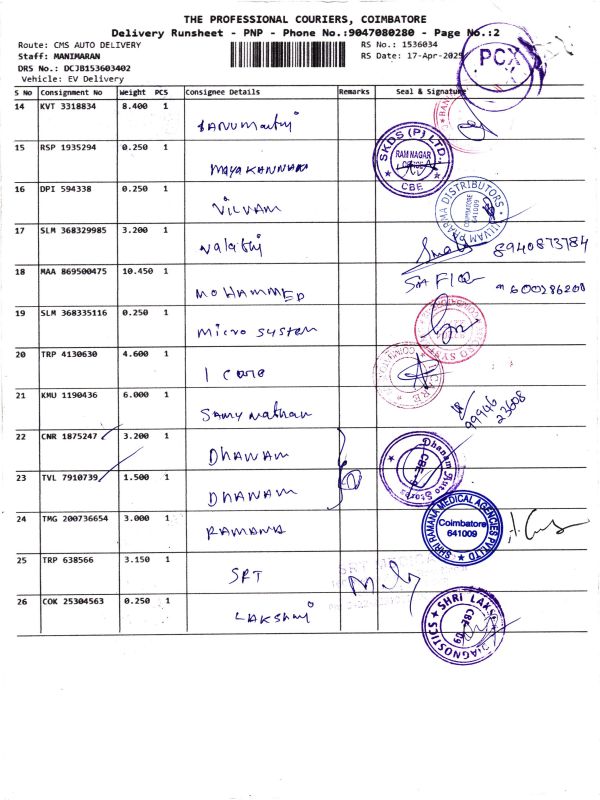 THE PROFESSIONAL COURIERS, COIMBATORE
Delivery Runsheet - PNP - Phone No.:9047080280 - Page No.:2
Route: CMS AUTO DELIVERY RS No.: 1536034
Staff: MANIMARAN RS Date: 17-Apr-2025
DRS No.: DCJB153603402
Vehicle: EV Delivery
PCX
S No Consignment No Weight PCS Consignee Details Remarks Seal & Signature
14 KVT 3318834 8.400 1
15 RSP 1935294 0.250 1 MAYAKANNAN
SKDS (P) LTD., RAM NAGAR CBE
16 DPI 594338 0.250 1 VILVAM
PHARMA DISTRIBUTORS COIMBATORE 641009
17 SLM 368329985 3.200 1 8940873784
18 MAA 869500475 10.450 1 MOHAMMED
19 SLM 368335116 0.250 1 Micro System
20 TRP 4130630 4.600 1 I care
21 KMU 1190436 6.000 1 Samy Nathan 99946 23608
22 CNR 1875247 3.200 1 DHANAM
23 TVL 7910739 1.500 1 DHANAM
Dhanam Auto Stores CBE
24 TMG 200736654 3.000 1 RAMANA
SHRI RAMANA MEDICAL AGENCIES PVT LTD Coimbatore 641009
25 TRP 638566 3.150 1 SRT
26 COK 25304563 0.250 1 LAKSHMI
SHRI LAKSHMI DIAGNOSTICS CBE - 09